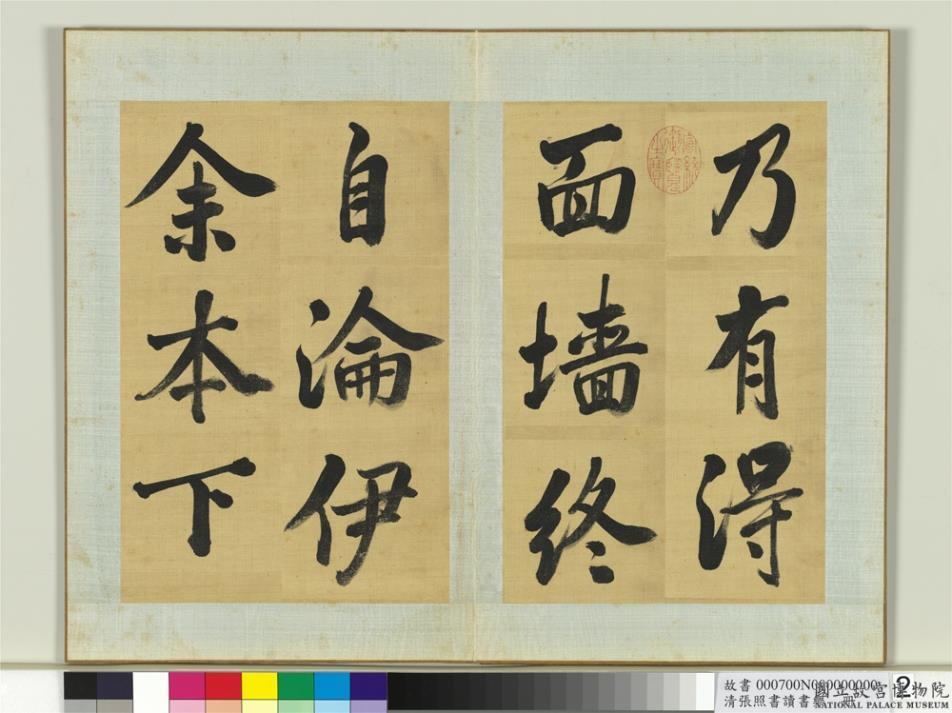 乃有得
面墙終
自淪伊
余本下
故書 000700N000000000
清張照書讀書
2
國立故宮博物院
NATIONAL PALACE MUSEUM